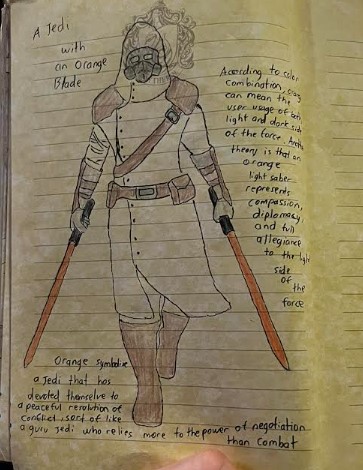 A Jedi
with
an Orange
Blade
According to color
combination, orang
can mean the
user usage of both
light and dark side
of the force. Another
theory is that an
orange
light saber
represents
compassion,
diplomacy,
and full
allegiance
to the light
side
of
the
force
Orange symbolize
a Jedi that has
devoted themselves to
a peaceful resolution of
conflict, sort of like
a guru jedi who relies more to the power of negotiation
than combat